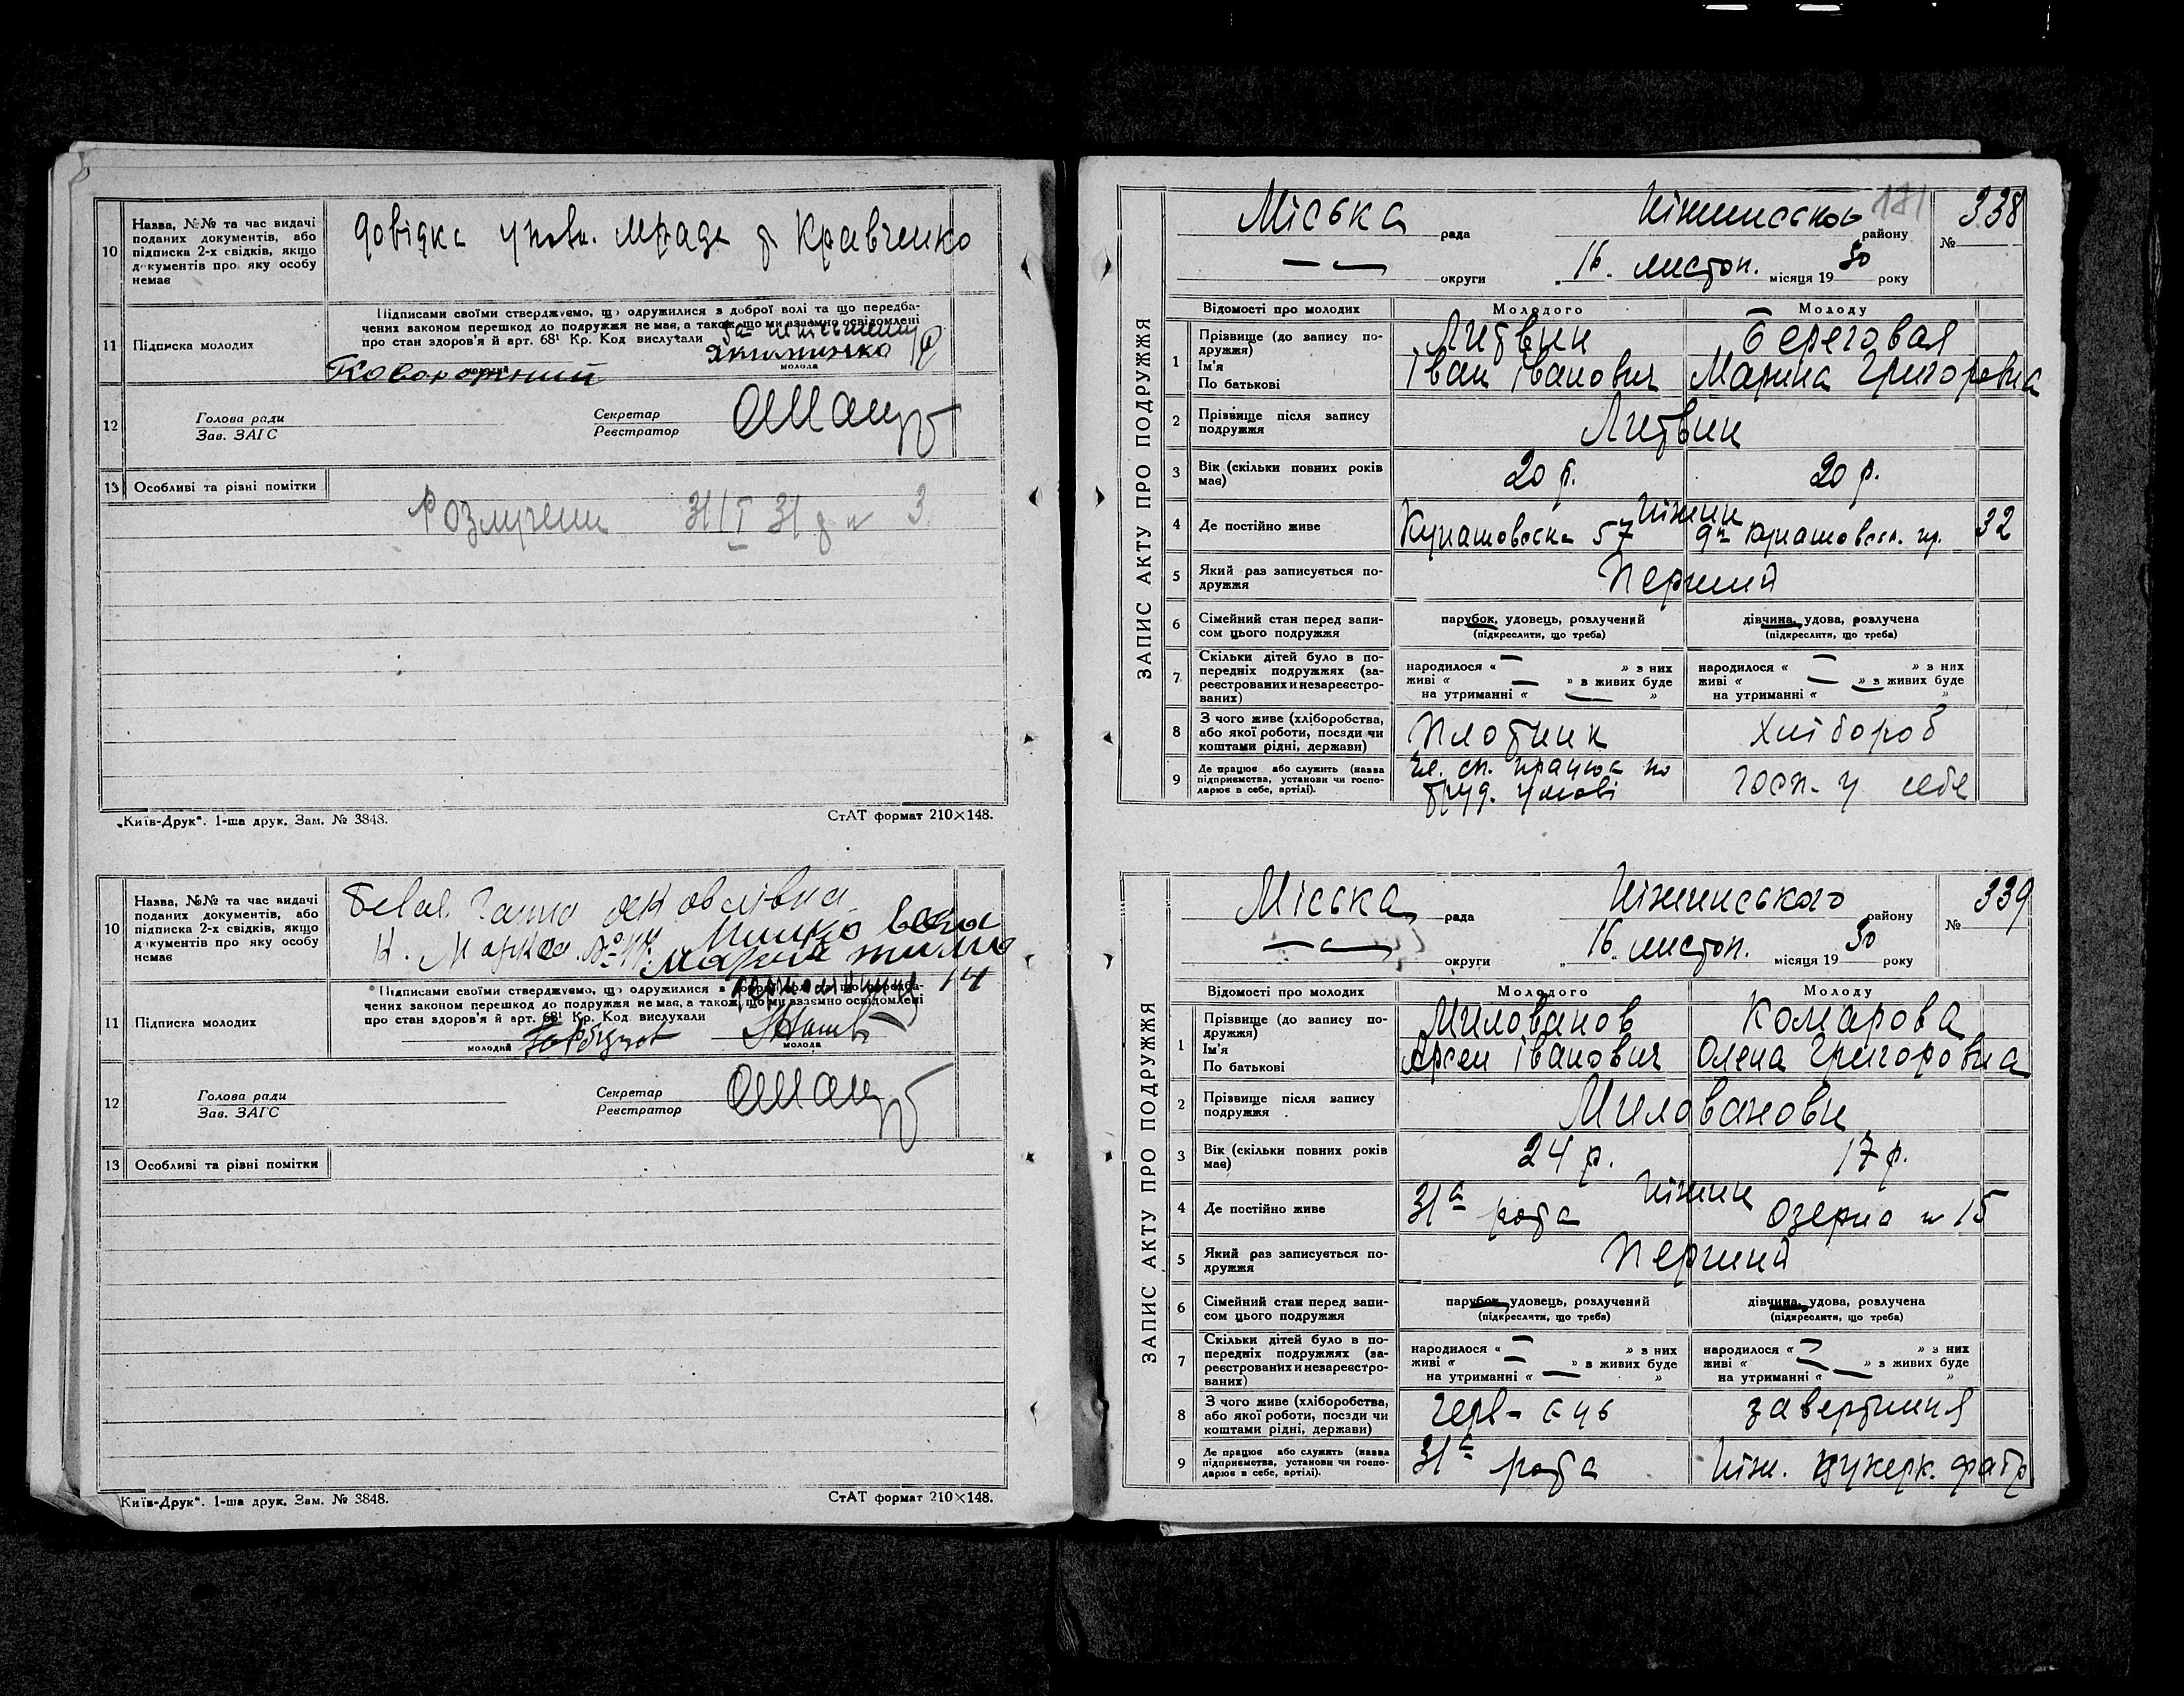 10
Назва, №№ та час видачі
поданих документів, або
підписка 2-х свідків, якщо
документів про яку особу
немає
довідка упов. мради Кравченко
11
Підписка молодих
Підписами своїми стверджуємо, що одружилися з доброї волі та що передба-
чених законом перешкод до подружжя не має, а також, що ми взаємно освідомлені
про стан здоров'я й арт. 68¹ Кр. Код вислухали
Якименко
молодий
молода
12
Голова ради
Зав. ЗАГС
Секретар
Реєстратор
13
Особливі та різні помітки
Розлучени 31/I 31 р № 3
„Київ-Друк“. 1-ша друк. Зам. № 3848.
СтАТ формат 210×148.
10
Назва, №№ та час видачі
поданих документів, або
підписка 2-х свідків, якщо
документів про яку особу
немає
Ганна Яковлівна
К. Маркса №
14
11
Підписка молодих
Підписами своїми стверджуємо, що одружилися з доброї волі та що передба-
чених законом перешкод до подружжя не має, а також, що ми взаємно освідомлені
про стан здоров'я й арт. 68¹ Кр. Код вислухали
молодий
молода
12
Голова ради
Зав. ЗАГС
Секретар
Реєстратор
13
Особливі та різні помітки
Київ-Друк“. 1-ша друк. Зам. № 3848.
СтАТ формат 210×148.
ЗАПИС АКТУ ПРО ПОДРУЖЖЯ
181
Міська рада Ніжинського району № 338
округи „16. листоп. місяця 1930 року
Відомості про молодих
Молодого
Молоду
1
Прізвище (до запису по-
дружжя)
Ім'я
По батькові
Литвин
Іван Іванович
Береговая
Марина Григоровна
2
Прізвище після запису
подружжя
Литвин
3
Вік (скільки повних років
має)
20 р.
20 р.
4
Де постійно живе
Ніжин
Кунашовська 57
Кунашовск. 32
5
Який раз записується по-
дружжя
Перший
6
Сімейний стан перед запи-
сом цього подружжя
парубок, удовець, розлучений
(підкреслити, що треба)
дівчина, удова, розлучена
(підкреслити, що треба)
7
Скільки дітей було в по-
передніх подружжях (за-
реєстрованих и незареєстро-
ваних)
народилося « » з них
живі « » з живих буде
на утриманні « »
народилося « » з них
живі « » з живих буде
на утриманні « »
8
З чого живе (хліборобства,
або якої роботи, посади чи
коштами рідні, держави)
Плотник
Хлібороб
9
Де працює або служить (назва
підприємства, установи чи госпо-
дарює в себе, артілі).
чл. сп. працює по
труд. умові
госп. у себе
ЗАПИС АКТУ ПРО ПОДРУЖЖЯ
Міська рада Ніжинського району № 339
округи „16. листоп. місяця 1930 року
Відомості про молодих
Молодого
Молоду
1
Прізвище (до запису по-
дружжя)
Ім'я
По батькові
Милованов
Арсен Іванович
Комарова
Олена Григоровна
2
Прізвище після запису
подружжя
Миловановы
3
Вік (скільки повних років
має)
24 р.
17 р.
4
Де постійно живе
Ніжин
31а рота
Озерна № 15
5
Який раз записується по-
дружжя
Перший
6
Сімейний стан перед запи-
сом цього подружжя
парубок, удовець, розлучений
(підкреслити, що треба)
дівчина, удова, розлучена
(підкреслити, що треба)
7
Скільки дітей було в по-
передніх подружжях (за-
реєстрованих и незареєстро-
ваних)
народилося « » з них
живі « » з живих буде
на утриманні « »
народилося « » з них
живі « » з живих буде
на утриманні « »
8
З чого живе (хліборобства,
або якої роботи, посади чи
коштами рідні, держави)
Черв-єць
завертниця
9
Де працює або служить (назва
підприємства, установи чи госпо-
дарює в себе, артілі).
31а рота
Ніж. цукерк. фабр